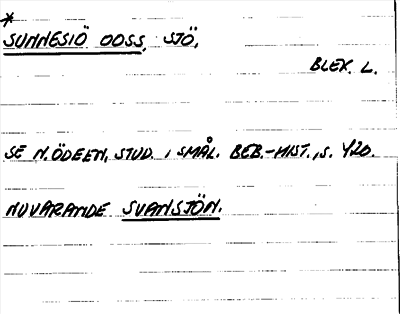 *
SUNNESIÖ OOSS, SJÖ,
BLEK. L.
SE N. ÖDEEN, STUD. I SMÅL. BEB.-HIST., S. 420.
NUVARANDE SVANSJÖN.